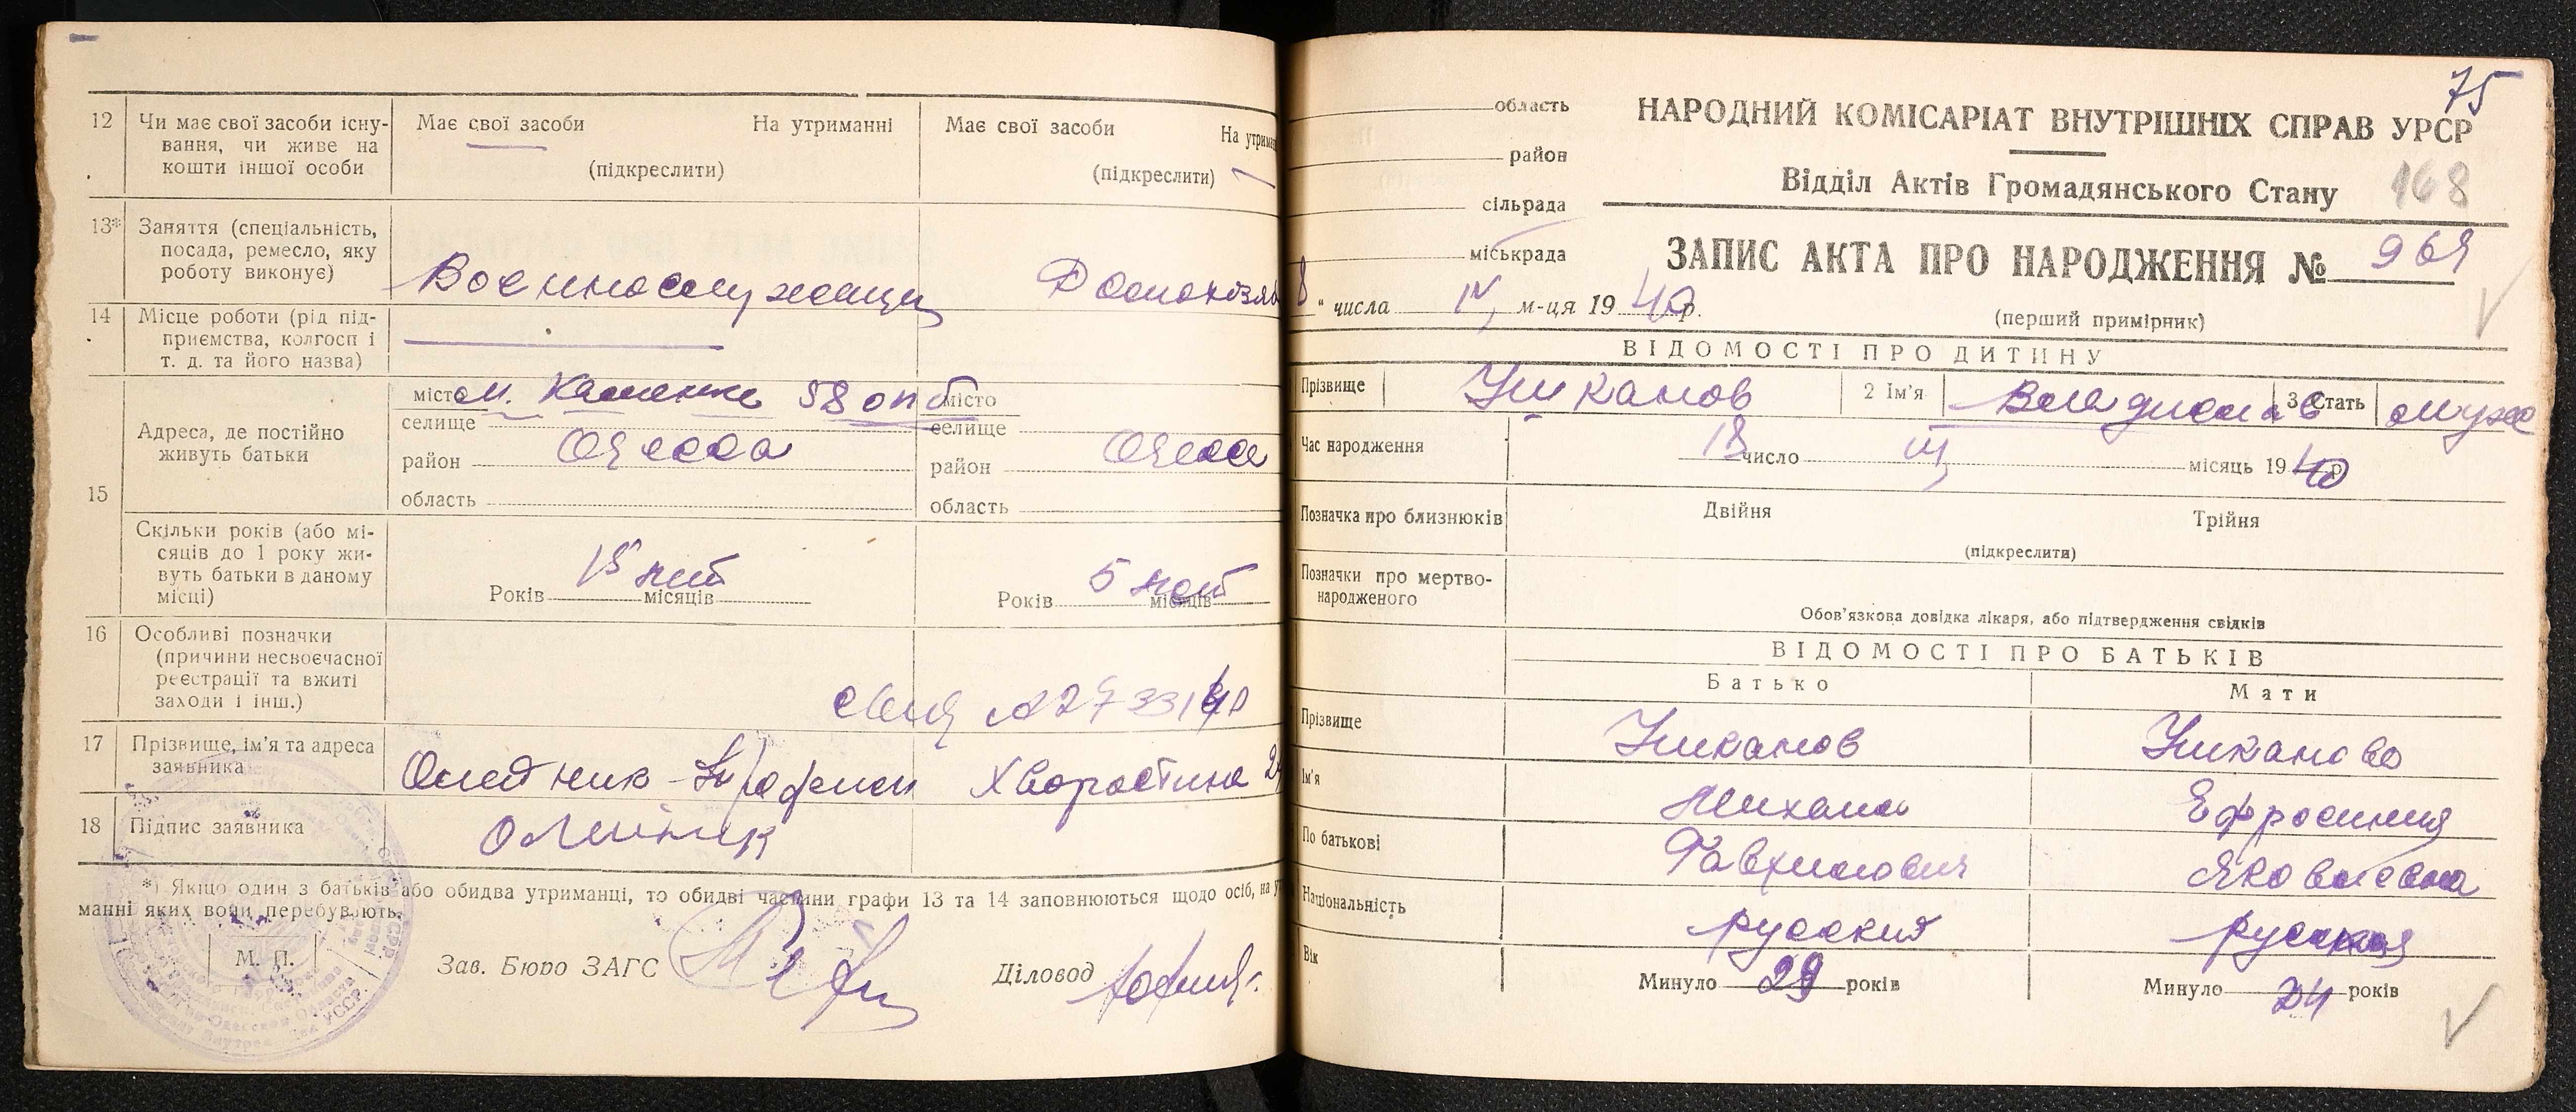 12 Чи має свої засоби існу-
вання, чи живе на
кошти іншої особи
Має свої засоби На утриманні
(підкреслити)
Має свої засоби На утрима
(підкреслити)
13* Заняття (спеціальність,
посада, ремесло, яку
роботу виконує)
Военнослужащи
Домохозя
14 Місце роботи (рід під-
приємства, колгосп і
т. д. та його назва)
15 Адреса, де постійно
живуть батьки
місто 58
селище
район Одесса
область
місто
селище
район Одесс
область
Скільки років (або мі-
сяців до 1 року жи-
вуть батьки в даному
місці)
Років 15 лет місяців
Років 5 лет місяців
16 Особливі позначки
(причини несвоєчасної
реєстрації та вжиті
заходи і інш.)
17 Прізвище, ім'я та адреса
заявника
Хворостина
18 Підпис заявника
*) Якщо один з батьків або обидва утриманці, то обидві частини графи 13 та 14 заповнюються щодо осіб, на у
манні яких вони перебувають.
М. П.
Зав. Бюро ЗАГС
Діловод
75
область
район
сільрада
міськрада
НАРОДНИЙ КОМІСАРІАТ ВНУТРІШНІХ СПРАВ УРСР
Відділ Актів Громадянського Стану 168
ЗАПИС АКТА ПРО НАРОДЖЕННЯ № 969
8 " числа IV м-ця 1940 р.
(перший примірник)
ВІДОМОСТІ ПРО ДИТИНУ
Прізвище Уиканов 2 Ім'я Владислав 3 Стать муж
Час народження 18 число III місяць 1940 р
Позначка про близнюків Двійня Трійня
(підкреслити)
Позначки про мертво-
народженого
Обов'язкова довідка лікаря, або підтвердження свідків
ВІДОМОСТІ ПРО БАТЬКІВ
Батько Мати
Прізвище Уиканов Уиканова
Ім'я Михаил Ефросиния
По батькові Яковлевна
Національність русский русская
Вік Минуло 29 років Минуло 24 років